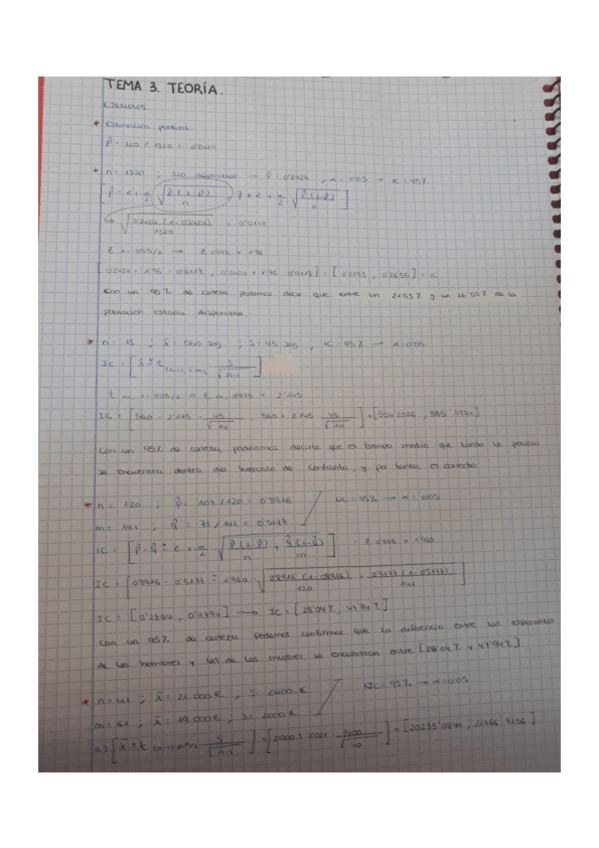 TEMA 3. TEORÍA.
EJEMPLOS
* Estimación puntual
p̂ = 320 / 1320 = 0'2424
* n = 1320 ; 320 disponibles → p̂ = 0'2424 ; α = 0'05 → IC = 95%
[ p̂ - z 1-α/2 √(p̂(1-p̂)/n) , p̂ + z 1-α/2 √(p̂(1-p̂)/n) ]
↳ √(0'2424 (1-0'2424) / 1320) = 0'0118
z 1-0'05/2 → z 0'975 = 1'96
[0'2424 - 1'96 · 0'0118 , 0'2424 + 1'96 · 0'0118] = [0'2193 , 0'2655] = IC
Con un 95% de certeza podemos decir que entre un 21'93% y un 26'55% de la
población estaría disponible
* n = 15 ; x̄ = 560 seg. ; S = 45 seg , IC = 95% → α = 0'05
IC = [ x̄ ± t (n-1), 1-α/2 S/√(n-1) ]
t 14, 1-0'05/2 = t 14, 0'975 = 2'145
IC = [560 - 2'145 · 45/√14 , 560 + 2'145 · 45/√14] = [534'2026 , 585'7974]
Con un 95% de certeza, podríamos decir que el tiempo medio que tarda la
se encuentra dentro del intervalo de confianza, y por tanto, es correcto
* n = 120 , p̂ = 107/120 = 0'8916 / NC = 95% → α = 0'05
m = 141 ; q̂ = 73/141 = 0'5177
IC = [ p̂ - q̂ ± z 1-α/2 √(p̂(1-p̂)/n + q̂(1-q̂)/m) ] · z 0'975 = 1'960
IC = [0'8916 - 0'5177 ± 1'960 · √(0'8916 (1-0'8916)/120 + 0'5177 (1-0'5177)/141)]
IC = [0'2804 , 0'4794] → IC = [28'04% , 47'94%]
Con un 95% de certeza podemos confirmar que la diferencia entre las
de los hombres y las de las mujeres se encuentran entre [28'04% y 47'94%]
* n = 41 ; x̄ = 21.000 € , S = 2400 € / NC = 95% → α = 0'05
m = 61 ; x̄ = 19.000 € , S = 2000 €